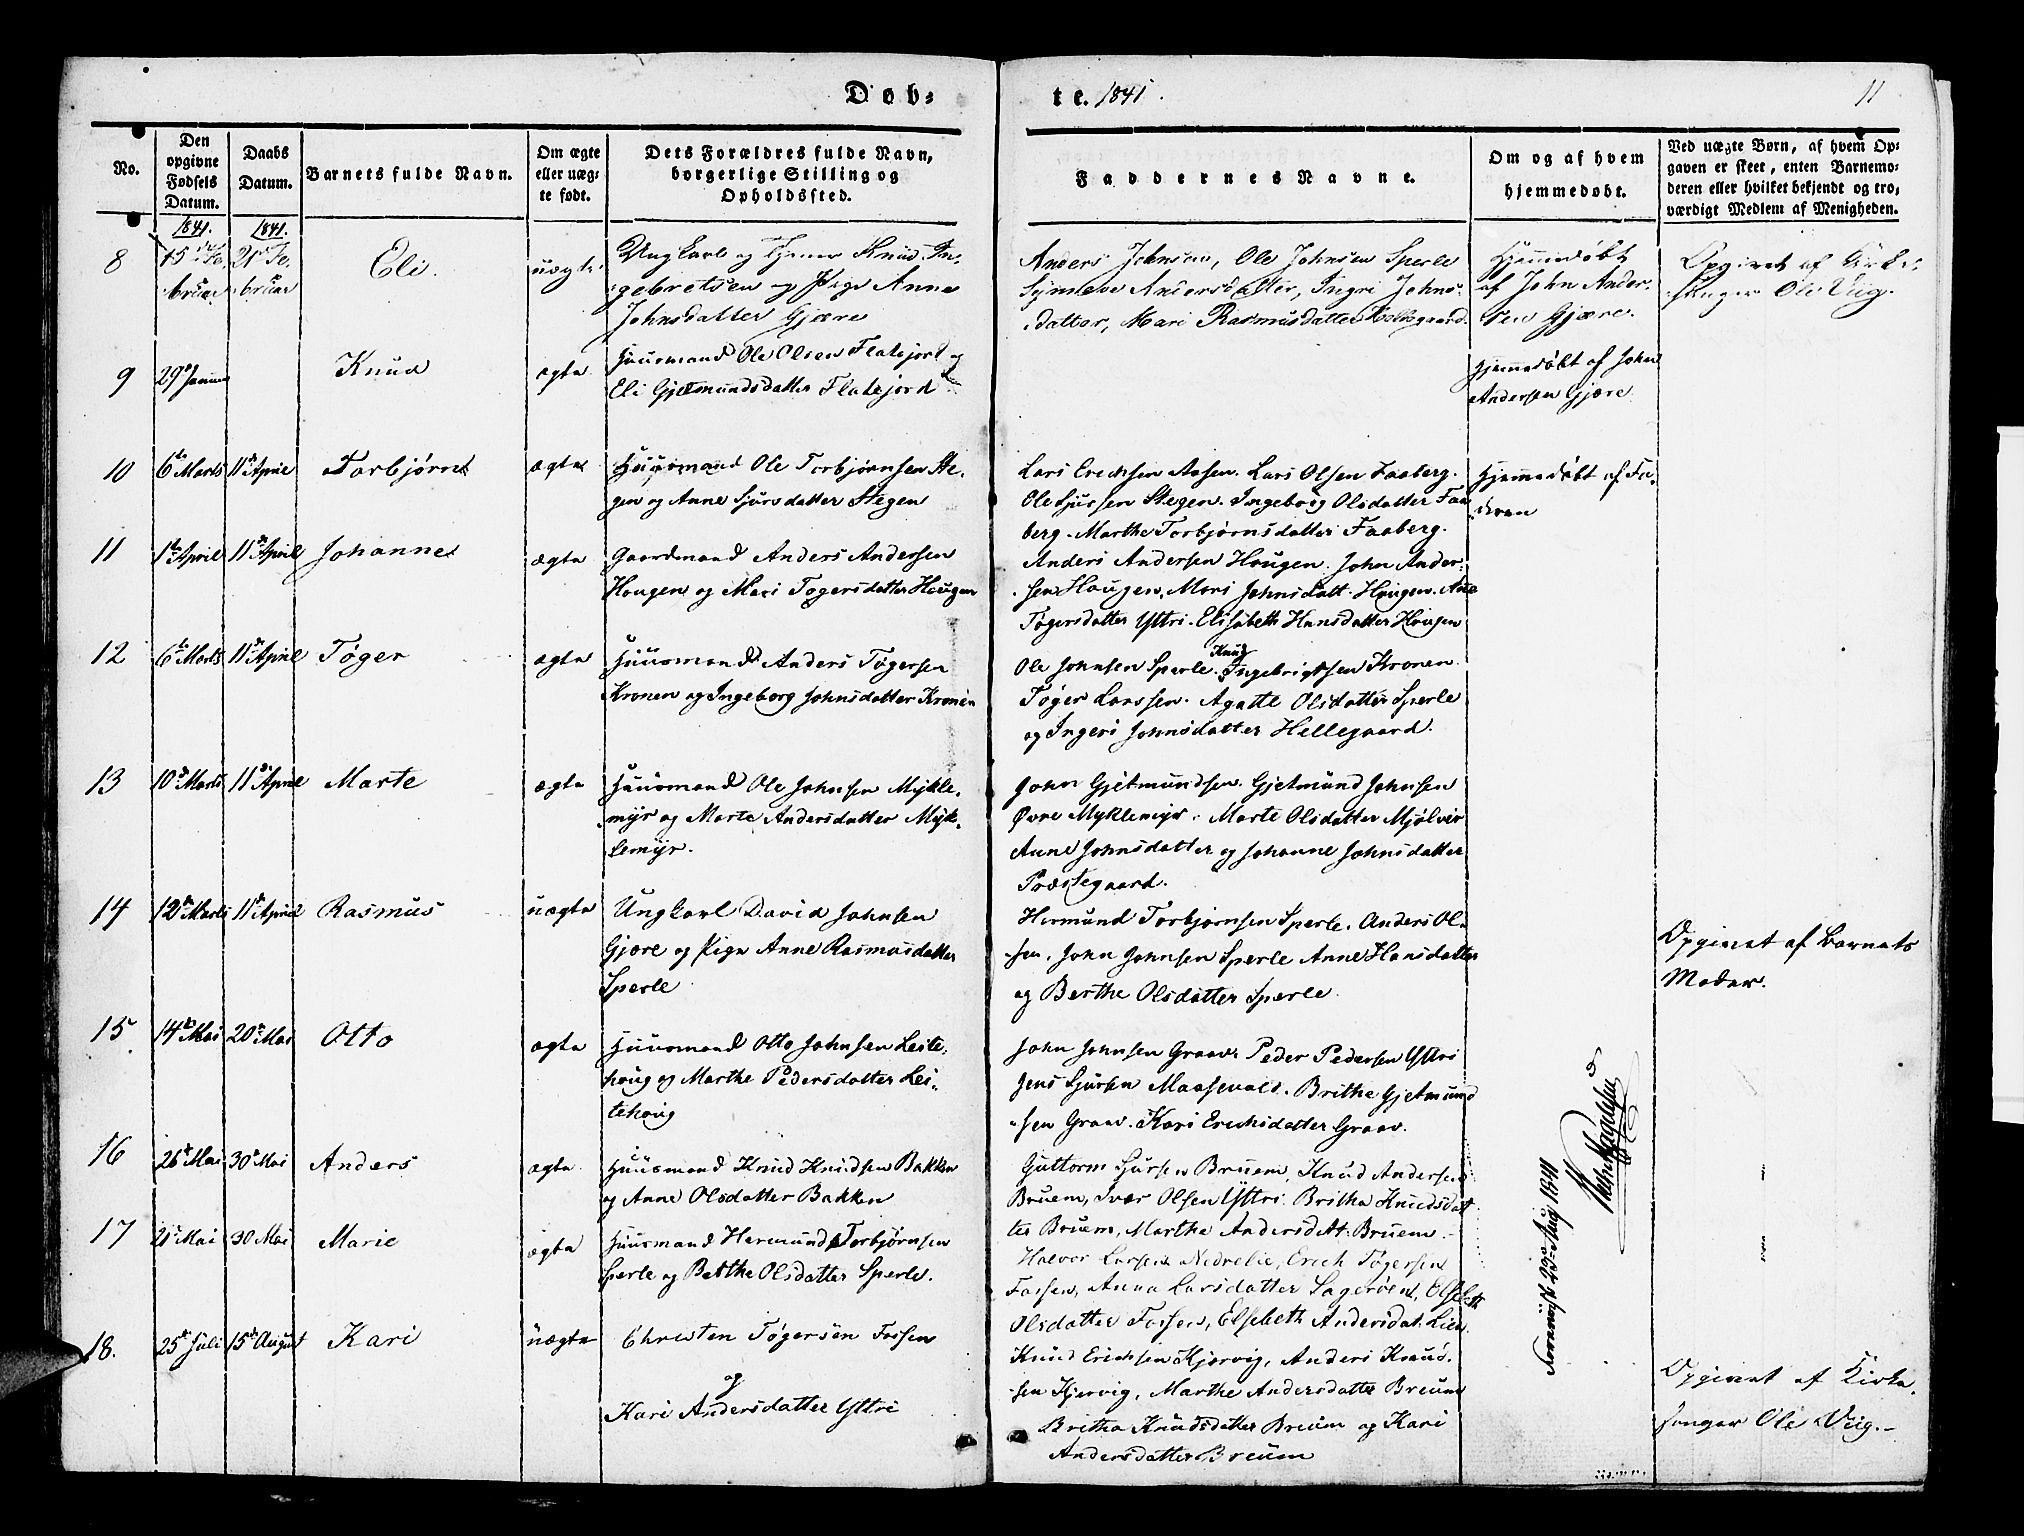 Døb-
te. 1841.
11
No.
Den opgivne Fødsels Datum.
Daabs Datum.
Barnets fulde Navn.
Om ægte eller uægte født.
Dets Forældres fulde Navn, borgerlige Stilling og Opholdssted.
Faddernes Navne.
Om og af hvem hjemmedøbt.
Ved uægte Børn, af hvem Opgaven er skeet, enten Barnemoderen eller hvilket bekjendt og troværdigt Medlem af Menigheden.
1841.
1841.
8
15de Februar
21de Februar
Eli.
uægte
Ungkarl og Knud In-
gebretsen og Pige Anne
Johnsdatter Gjære
Anders Johnsen, Ole Johnsen Sperle
Synneve Andersdatter, Ingri Johns-
datter, Mari Rasmusdatter Hellegaard.
Hjemmedøbt
af John Ander-
sen Gjære.
Opgivet af Kirke-
sanger Ole Viig.
9
29de Januar
Knud
ægte
Huusmand Ole Olsen Flatejord og
Eli Gjetmundsdatter Flatejord
Hjemmedøbt af John
Andersen Gjære
10
6te Marts
11te April
Torbjørn
ægte
Huusmand Ole Torbjørnsen Ste-
gen og Anne Sjursdatter Stegen
Lars Erichsen Aasen. Lars Olsen Faaberg.
Ole Sjursen Stegen. Ingeborg Olsdatter Faa-
berg. Marthe Torbjørnsdatter Faaberg.
Hjemmedøbt af Fa-
deren
11
1te April
11te April
Johanne
ægte
Gaardmand Anders Andersen
Hougen og Mari Tøgersdatter Hougen
Anders Andersen Hougen. John Ander-
sen Hougen, Mari Johnsdatt. Hougen. Ane
Tøgersdatter Yttri. Elisabeth Hansdatter Hougen
12
6te Marts
11te April
Tøger
ægte
Huusmand Anders Tøgersen
Kronen og Ingeborg Johnsdatter Kronen
Ole Johnsen Sperle. Knud Ingebrigtsen Kronen.
Tøger Larssen. Agatte Olsdatter Sperle
og Ingeri Johnsdatter Hellegaard.
13
10de Marts
11te April
Marte
ægte
Huusmand Ole Johnsen Mykle-
myr og Marte Andersdatter Myk-
lemyr.
John Gjetmundsen. Gjetmund Johnsen
Øvre Myklemyr. Marte Olsdatter Mjølvir
Anne Johnsdatter og Johanne Johnsdatter
Præstegaard.
14
12te Marts
11te April
Rasmus
uægte
Ungkarl David Johnsen
Gjære og Pige Anne Rasmusdatter
Sperle
Hermund Torbjørnsen Sperle. Anders Ol-
sen. John Johnsen Sperle Anne Hansdatter
og Berthe Olsdatter Sperle.
Opgivet af Barnets
Moder.
15
14te Mai
20de Mai
Otto
ægte
Huusmand Otto Johnsen Leite-
houg og Marthe Pedersdatter Lei-
tehoug
John Johnsen Graav. Peder Pedersen Yttri
Jens Sjursen Maasevald. Brithe Gjetmund-
sen Graav. Kari Erichsdatter Graav.
16
26de Mai
30te Mai
Anders
ægte
Huusmand Knud Knudsen Bakken
og Anne Olsdatter Bakken
Guttorm Sjursen Bruem, Knud Andersen
Bruem, Ivar Olsen Yttri. Britha Knudsdat-
ter Bruem, Marthe Andersdatt. Bruem.
17
21de Mai
30 Mai
Marie
ægte
Huusmand Hermund Torbjørnsen
Sperle og Berthe Olsdatter Sperle.
Halvor Larsen Nedrelie, Erich Tøgersen
Fossen, Anna Larsdatter Sagerøen, Elsebeth
Olsdatter Fossen, Elsebeth Andersdat. Lien.
18.
25de Juli
15de August
Kari
uægte
Christen Tøgersen Fossen
og
Kari Andersdatter Yttri
Knud Erichsen Kjørvig, Anders Knud-
sen Kjørvig, Marthe Andersdatter Breum
Britha Knudsdatter Breum og Kari
Andersdatter Breum
Opgivet af Kirke-
sanger Ole Viig.
Foreviist 23de Aug 1841